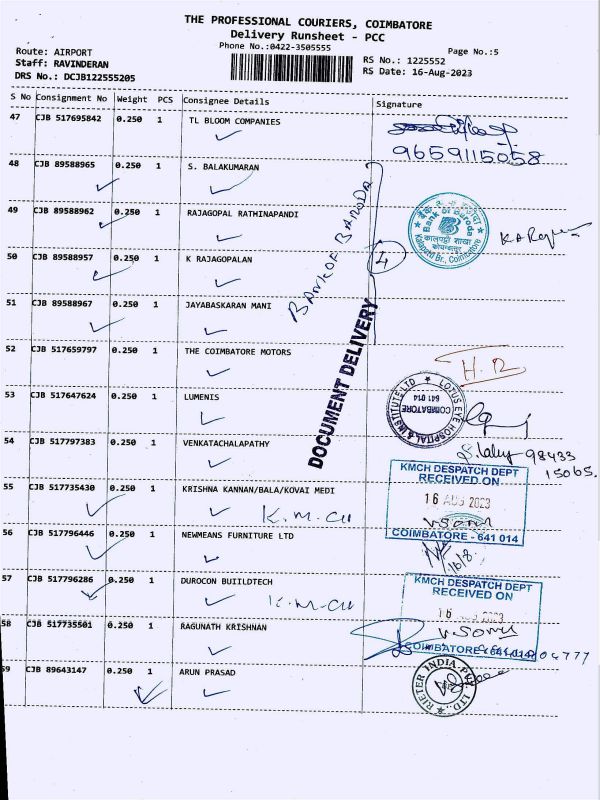 THE PROFESSIONAL COURIERS, COIMBATORE
Delivery Runsheet - PCC
Phone No.:0422-3505555
Page No.:5
Route: AIRPORT
Staff: RAVINDERAN
DRS No.: DCJB122555205
RS No.: 1225552
RS Date: 16-Aug-2023
S No Consignment No Weight PCS Consignee Details Signature
47 CJB 517695842 0.250 1 TL BLOOM COMPANIES
9659115058
48 CJB 89588965 0.250 1 S. BALAKUMARAN
49 CJB 89588962 0.250 1 RAJAGOPAL RATHINAPANDI
50 CJB 89588957 0.250 1 K RAJAGOPALAN
51 CJB 89588967 0.250 1 JAYABASKARAN MANI
BANK OF BARODA
Bank of Baroda
कालपट्टी शाखा
Kalapatti Br., Coimbatore
DOCUMENT DELIVERY
52 CJB 517659797 0.250 1 THE COIMBATORE MOTORS
53 CJB 517647624 0.250 1 LUMENIS
LOTUS EYE HOSPITAL & INSTITUTE LTD
COIMBATORE
641 014
54 CJB 517797383 0.250 1 VENKATACHALAPATHY
98433
15065.
55 CJB 517735430 0.250 1 KRISHNA KANNAN/BALA/KOVAI MEDI
K.M.CH
KMCH DESPATCH DEPT
RECEIVED ON
16 AUG 2023
COIMBATORE - 641 014
56 CJB 517796446 0.250 1 NEWMEANS FURNITURE LTD
16/8
57 CJB 517796286 0.250 1 DUROCON BUIILDTECH
K.M.CH
KMCH DESPATCH DEPT
RECEIVED ON
16 2023
COIMBATORE - 641 014
58 CJB 517735501 0.250 1 RAGUNATH KRISHNAN
59 CJB 89643147 0.250 1 ARUN PRASAD
RIETER INDIA PVT. LTD.